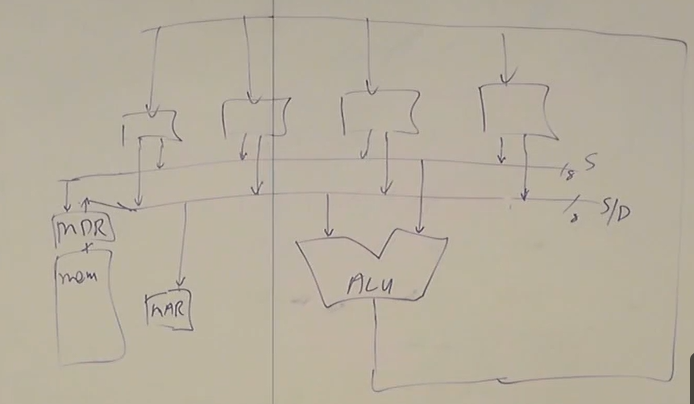 8 S
8 S/D
MDR
mem
MAR
ALU